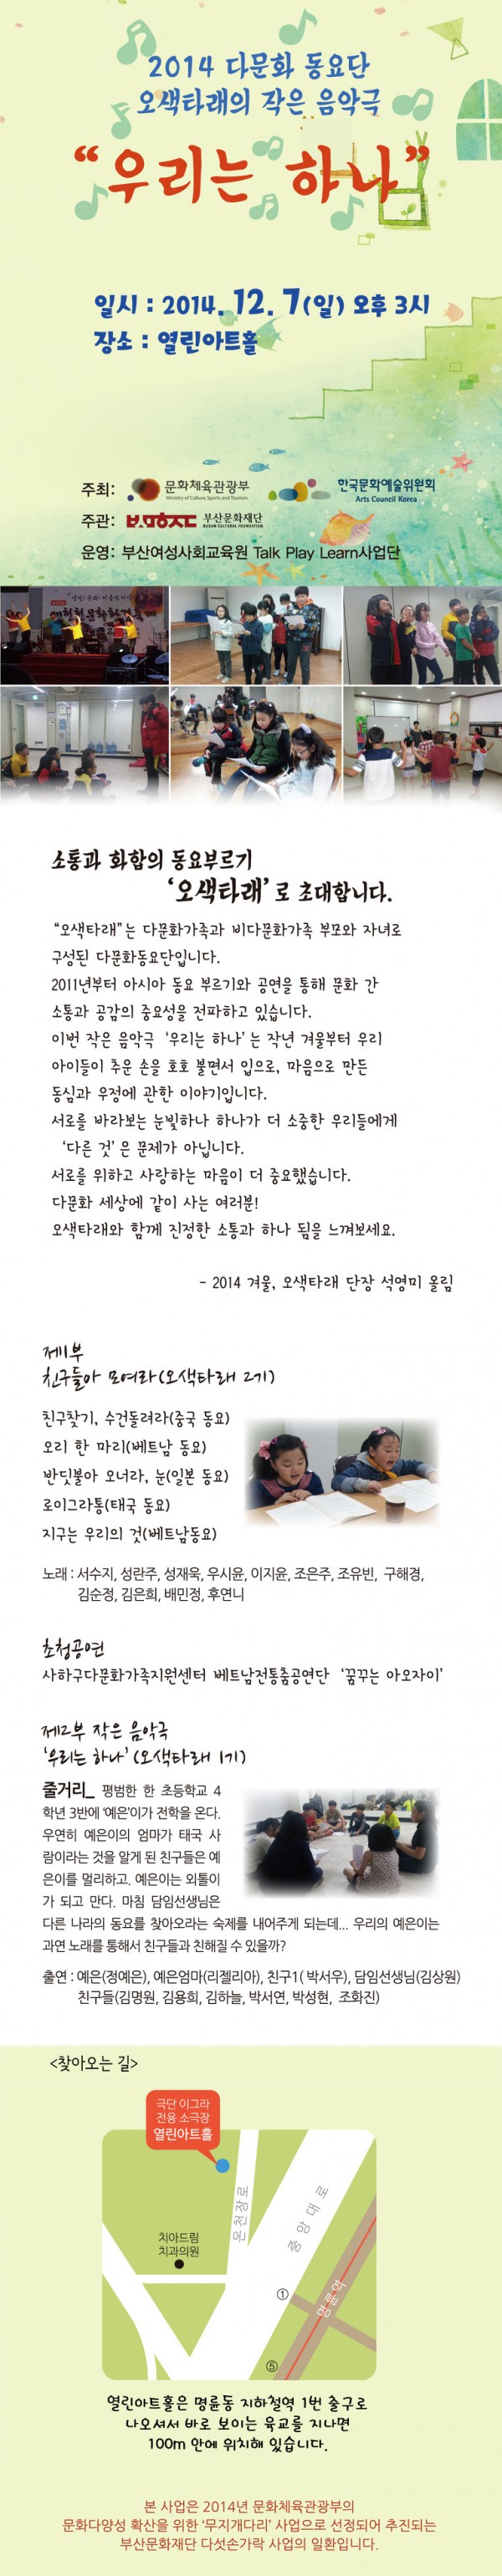 2014 다문화 동요단
오색타래의 작은 음악극
“우리는 하나”
일시 : 2014. 12. 7(일) 오후 3시
장소 : 열린아트홀
주최: 문화체육관광부 한국문화예술위원회
Ministry of Culture, Sports and Tourism Arts Council Korea
주관: 부산문화재단
BUSAN CULTURAL FOUNDATION
운영: 부산여성사회교육원 Talk Play Learn사업단
소통과 화합의 동요부르기
‘오색타래’로 초대합니다.
“오색타래”는 다문화가족과 비다문화가족 부모와 자녀로
구성된 다문화동요단입니다.
2011년부터 아시아 동요 부르기와 공연을 통해 문화 간
소통과 공감의 중요성을 전파하고 있습니다.
이번 작은 음악극 ‘우리는 하나’는 작년 겨울부터 우리
아이들이 추운 손을 호호 불면서 입으로, 마음으로 만든
동심과 우정에 관한 이야기입니다.
서로를 바라보는 눈빛하나 하나가 더 소중한 우리들에게
‘다른 것’은 문제가 아닙니다.
서로를 위하고 사랑하는 마음이 더 중요했습니다.
다문화 세상에 같이 사는 여러분!
오색타래와 함께 진정한 소통과 하나 됨을 느껴보세요.
- 2014 겨울, 오색타래 단장 석영미 올림
제1부
친구들아 모여라(오색타래 2기)
친구찾기, 수건돌려라(중국 동요)
오리 한 마리(베트남 동요)
반딧불아 오너라, 눈(일본 동요)
로이그라통(태국 동요)
지구는 우리의 것(베트남동요)
노래 : 서수지, 성란주, 성재욱, 우시윤, 이지윤, 조은주, 조유빈, 구해경,
김순정, 김은희, 배민정, 후연니
초청공연
사하구다문화가족지원센터 베트남전통춤공연단 ‘꿈꾸는 아오자이’
제2부 작은 음악극
‘우리는 하나’(오색타래 1기)
줄거리_ 평범한 한 초등학교 4
학년 3반에 ‘예은’이가 전학을 온다.
우연히 예은이의 엄마가 태국 사
람이라는 것을 알게 된 친구들은 예
은이를 멀리하고, 예은이는 외톨이
가 되고 만다. 마침 담임선생님은
다른 나라의 동요를 찾아오라는 숙제를 내어주게 되는데... 우리의 예은이는
과연 노래를 통해서 친구들과 친해질 수 있을까?
출연 : 예은(정예은), 예은엄마(리젤리아), 친구1( 박서우), 담임선생님(김상원)
친구들(김명원, 김용희, 김하늘, 박서연, 박성현, 조화진)
<찾아오는 길>
극단 이그라
전용 소극장
열린아트홀
온천장로
중앙대로
치아드림
치과의원
①
명륜역
⑤
열린아트홀은 명륜동 지하철역 1번 출구로
나오셔서 바로 보이는 육교를 지나면
100m 안에 위치해 있습니다.
본 사업은 2014년 문화체육관광부의
문화다양성 확산을 위한 ‘무지개다리’ 사업으로 선정되어 추진되는
부산문화재단 다섯손가락 사업의 일환입니다.